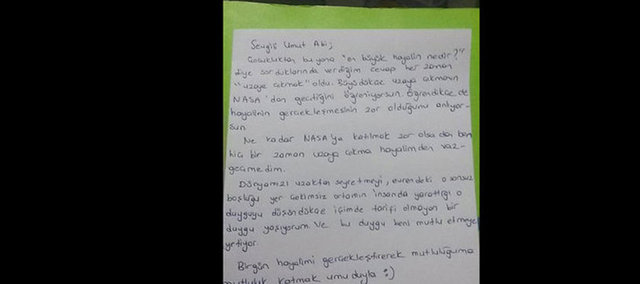 Sevgili Umut Abi,
Çocukluktan bu yana "en büyük hayalin nedir?"
Diye sorduklarında verdiğim cevap her zaman
"uzaya çıkmak" oldu. Büyüdükçe uzaya çıkmanın
NASA'dan geçtiğini öğreniyorsun. Öğrendikçe de
hayalinin gerçekleşmesinin zor olduğunu anlıyor-
sun.
Ne kadar NASA'ya katılmak zor olsa da ben
hiç bir zaman uzaya çıkma hayalimden vaz-
geçmedim.
Dünyamızı uzaktan seyretmeyi, evrendeki o sonsuz
boşluğu yer çekimsiz ortamın insanda yarattığı o
duyguyu düşündükçe içimde tarifi olmayan bir
duygu yaşıyorum. Ve bu duygu beni mutlu etmeye
yetiyor.
Birgün hayalimi gerçekleştirerek mutluluğuma
mutluluk katmak umuduyla :)